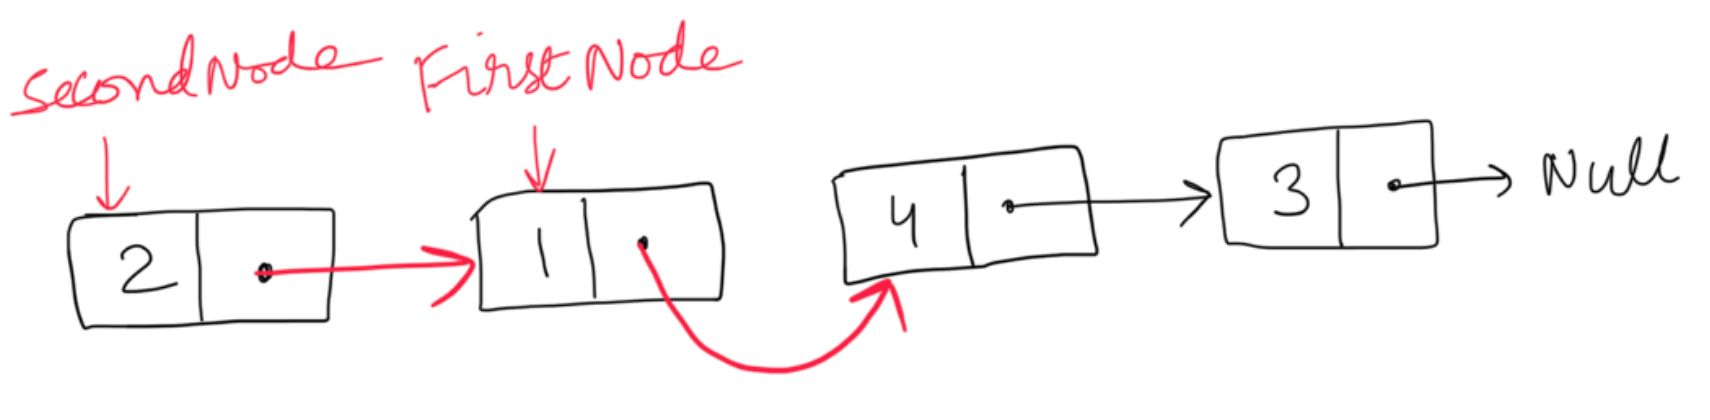 SecondNode FirstNode
2 1 4 3 Null